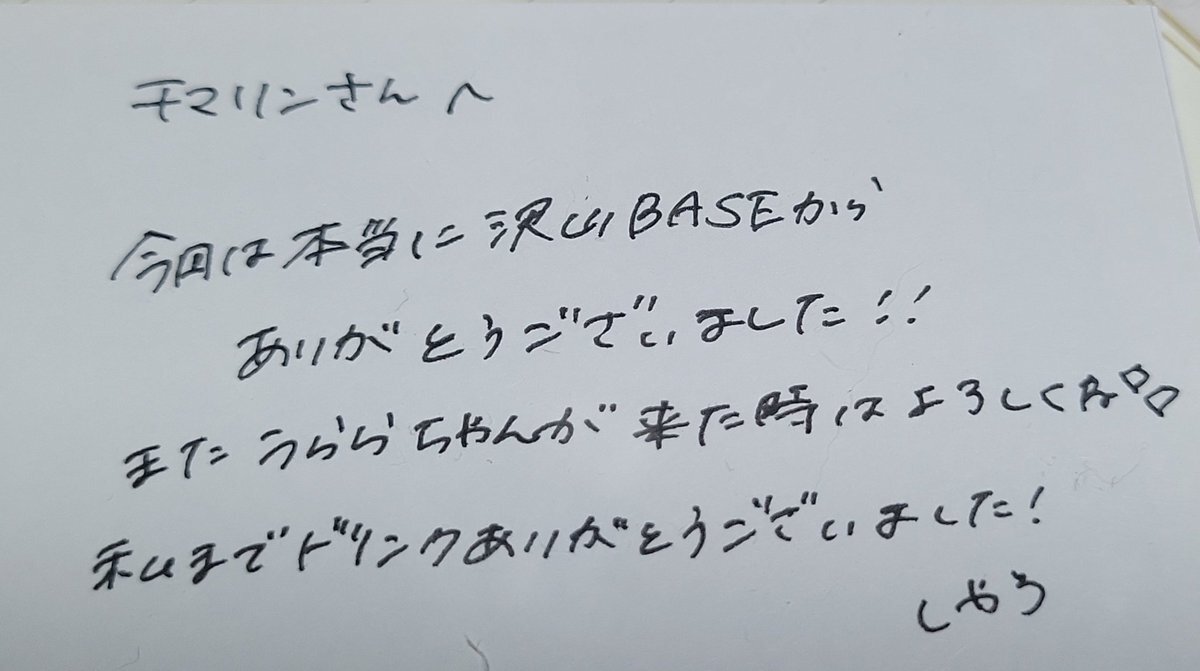 チマリンさんへ
今回は本当に沢山BASEから
ありがとうございました!!
またうららちゃんが来た時はよろしくな
私までドリンクありがとうございました!
しゃろ